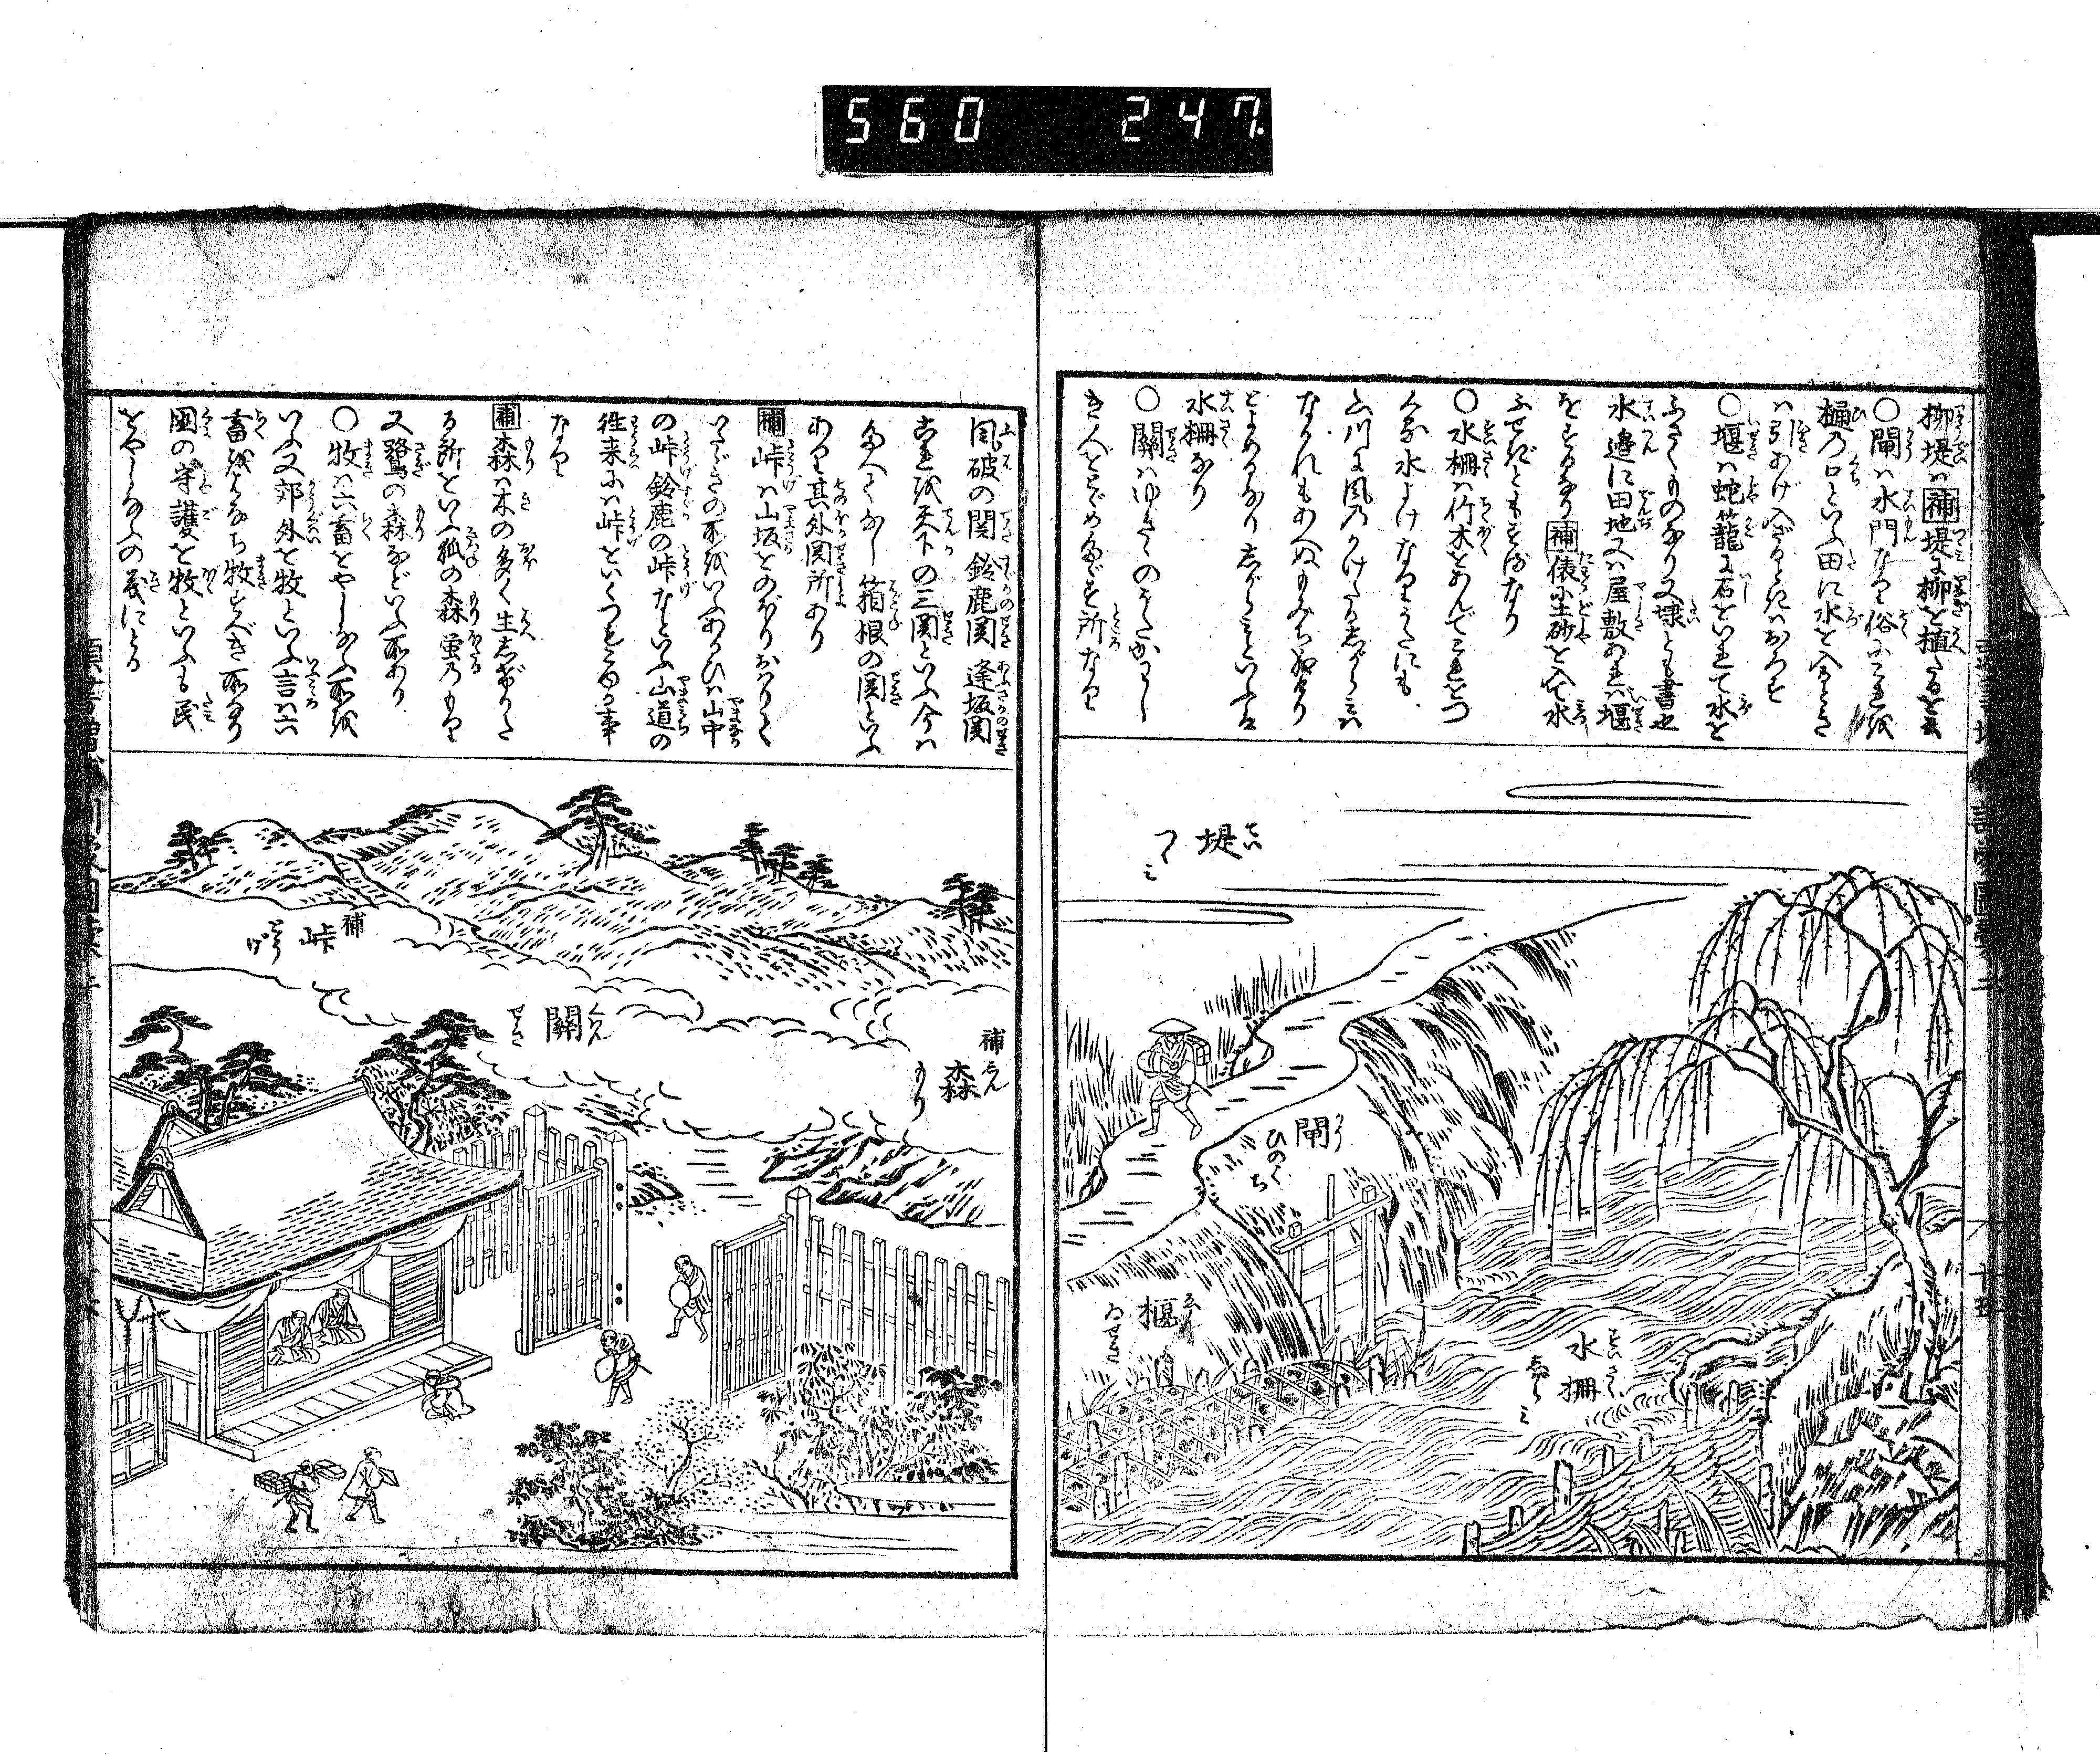 560 247
柳堤ハ補堤に柳を植たるを云
○閘ハ水門なり俗にこれを
樋の口といふ田に水を入るとき
ハ引あげ入ざるときハおろす
○堰ハ蛇籠に石をいれて水を
ふさぐものなり又埭とも書也
水邊に田地又ハ屋敷あれバ堰
をするなり補俵に土砂を入て水
ふせぎともするなり
○水柵ハ竹木をあんでこれをつ
くる水よけなりうたにも
山川に風のかけたるしがらみハ
ながれもあへぬもみぢなりけり
とよめるなりしがらみといふは
水柵なり
○關ハゆきゝの
き人をとゞめたゞす所なり
堤 てい つゝミ
閘 かう ひのくち
堰 ゐせき
水柵 すいさく しがらミ
風破の関鈴鹿関逢坂関
これを天下の三関といふ今ハ
たへてなし箱根の関といふ
あり其外関所あり
補峠ハ山坂をのぼりおハりて
いたゞきの所をいふあるひハ山中
の峠鈴鹿の峠などいふ山道の
往来にハ峠といくつもこゆる事
なり
補森ハ木の多く生しげりた
る所をいふ狐の森蛍のもり
又鷺の森などいふ所あり
○牧ハ六畜をやしなふ所を
いふ又郊外を牧といふ言ハ六
畜をはなち牧すべき所なり
國の守護を牧といふも民
をやしなふの義にとる
補 峠 とうげ
關 くハん せき
補 森 しん もり